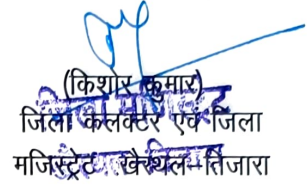 (किशोर कुमार)
जिला कलक्टर एवं जिला
मजिस्ट्रेट खैरथल-तिजारा